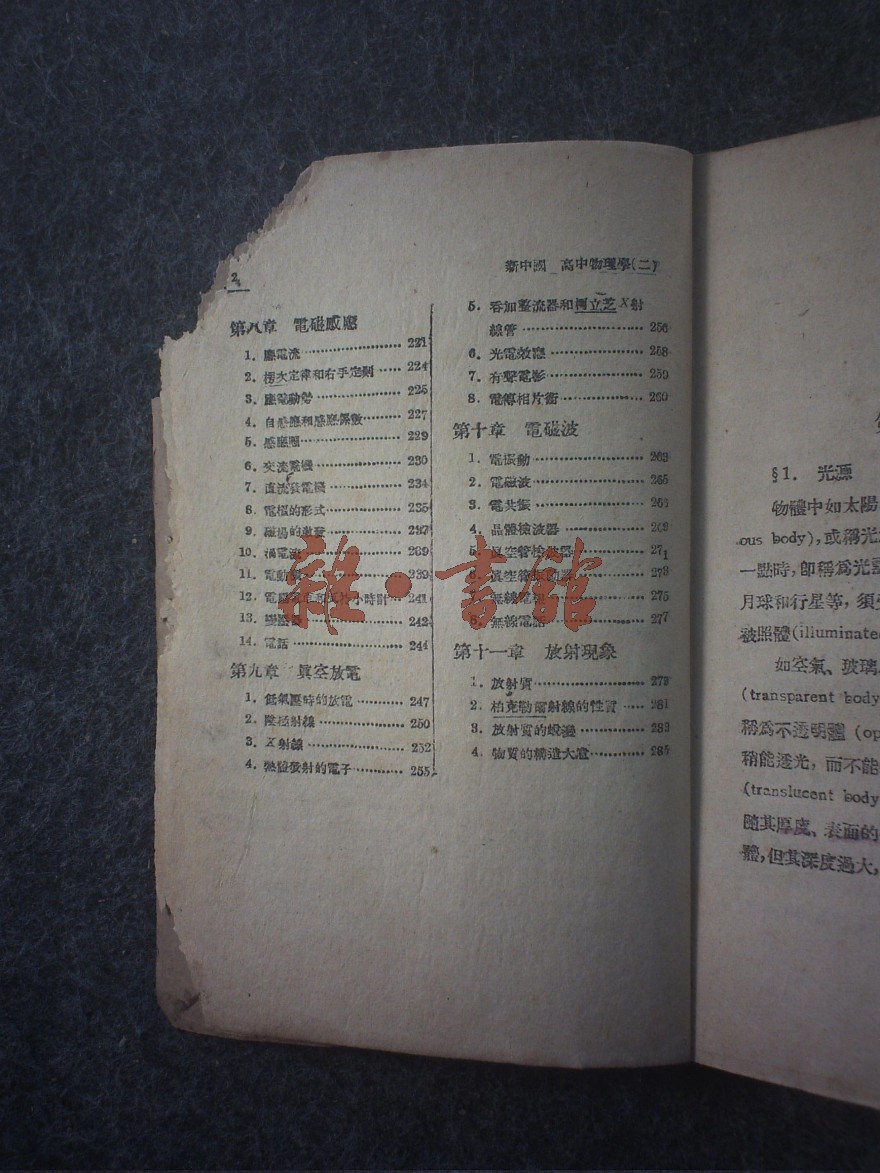 2
新中國 高中物理學(二)
第八章 電磁感應
1. 應電流 221
2. 楞次定律和右手定則 224
3. 應電動勢 225
4. 自感應和感應係數 227
5. 感應圈 229
6. 交流電機 230
7. 直流發電機 234
8. 電樞的形式 235
9. 磁場的激發 237
10. 渦電流 239
11. 電動 239
12. 電 小時計 241
13. 變壓器 242
14. 電話 244
第九章 眞空放電
1. 低氣壓時的放電 247
2. 陰極射線 250
3. X射線 252
4. 發射的電子 255
5. 吞加整流器和柯立芝X射
線管 256
6. 光電效應 258
7. 有聲電影 259
8. 電傳相片術 260
第十章 電磁波
1. 電振動 263
2. 電磁波 265
3. 電共振 268
4. 晶體檢波器 269
5. 眞空管檢波器 271
6. 眞空管振盪器 273
7. 無線電報 275
8. 無線電話 277
第十一章 放射現象
1. 放射質 279
2. 柏克勒爾射線的性質 281
3. 放射質的蛻變 283
4. 物質的構造大意 285
雜·書館
§1. 光源
物體中如太陽
ous body),或稱光
一點時,卽稱爲光
月球和行星等,須
被照體(illuminated
如空氣、玻璃
(transparent body
稱爲不透明體 (op
稍能透光,而不能
(translucent body
隨其厚度、表面的
體,但其深度過大,